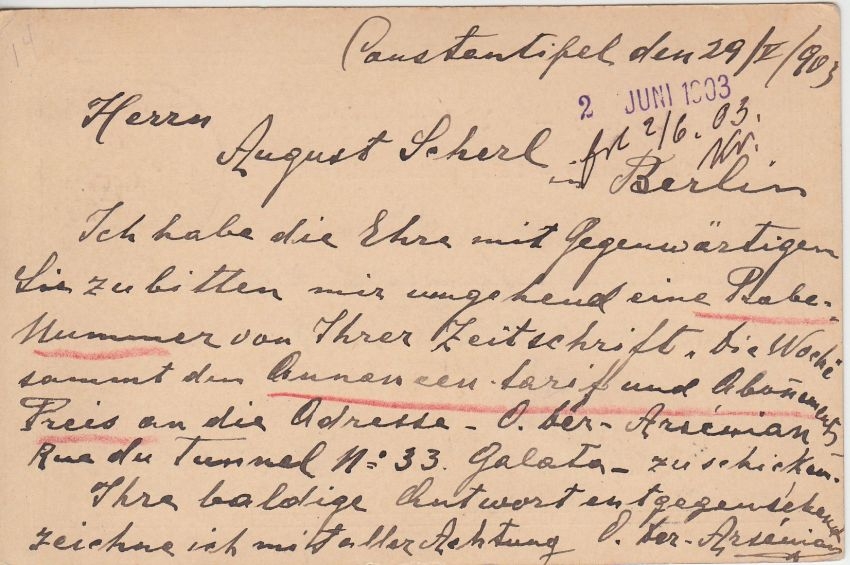 14
Constantipel den 29/V/903
2 JUNI 1903
Herrn
2/6.03.
August Scherl in Berlin
Ich habe die Ehre mit Gegenwärtigen
Sie zu bitten mir umgehend eine Probe-
Nummer von Ihrer Zeitschrift "Die Woche"
sammt den Annoncen-tarif und Aboñements
Preis an die Adresse - O. ter-Arsénian
Rue du Tunnel No: 33. Galata - zu schicken.
Ihre baldige Antwort entgegensehend
zeichne ich mit aller Achtung O. ter-Arsénian